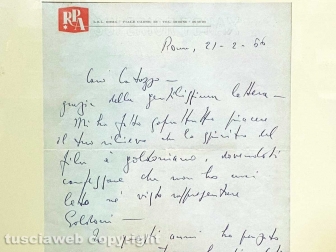 RPA
Roma, 21-2-66
Caro Catozzo -
grazie della gentilissima lettera -
Mi ha fatto soprattutto piacere
il tuo rilievo che lo spirito del
film è goldoniano, dovendoti
confessare che non ho mai
letto né visto rappresentare
Goldoni -
In questi anni ho pensato
tusciaweb copyright ©